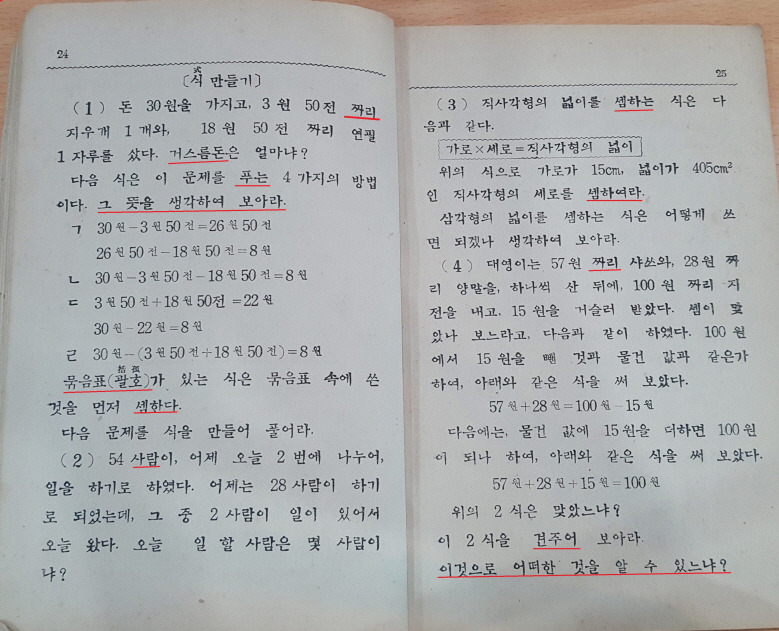 24
式
[식 만들기]
(1) 돈 30원을 가지고, 3원 50전 짜리
지우개 1개와, 18원 50전 짜리 연필
1자루를 샀다. 거스름돈은 얼마냐?
다음 식은 이 문제를 푸는 4가지의 방법
이다. 그 뜻을 생각하여 보아라.
ㄱ 30원-3원50전=26원50전
26원50전-18원50전=8원
ㄴ 30원-3원50전-18원50전=8원
ㄷ 3원50전+18원50전=22원
30원-22원=8원
ㄹ 30원-(3원50전+18원50전)=8원
括弧
묶음표(괄호)가 있는 식은 묶음표 속에 쓴
것을 먼저 셈한다.
다음 문제를 식을 만들어 풀어라.
(2) 54사람이, 어제 오늘 2번에 나누어,
일을 하기로 하였다. 어제는 28사람이 하기
로 되었는데, 그 중 2사람이 일이 있어서
오늘 왔다. 오늘 일 할 사람은 몇 사람이
냐?
25
(3) 직사각형의 넓이를 셈하는 식은 다
음과 같다.
가로×세로=직사각형의 넓이
위의 식으로 가로가 15cm, 넓이가 405cm²
인 직사각형의 세로를 셈하여라.
삼각형의 넓이를 셈하는 식은 어떻게 쓰
면 되겠나 생각하여 보아라.
(4) 대영이는 57원 짜리 샤쓰와, 28원 짜
리 양말을, 하나씩 산 뒤에, 100원 짜리 지
전을 내고, 15원을 거슬러 받았다. 셈이 맞
았나 보느라고, 다음과 같이 하였다. 100원
에서 15원을 뺀 것과 물건 값과 같은가
하여, 아래와 같은 식을 써 보았다.
57원+28원=100원-15원
다음에는, 물건 값에 15원을 더하면 100원
이 되나 하여, 아래와 같은 식을 써 보았다.
57원+28원+15원=100원
위의 2식은 맞았느냐?
이 2식을 견주어 보아라.
이것으로 어떠한 것을 알 수 있느냐?